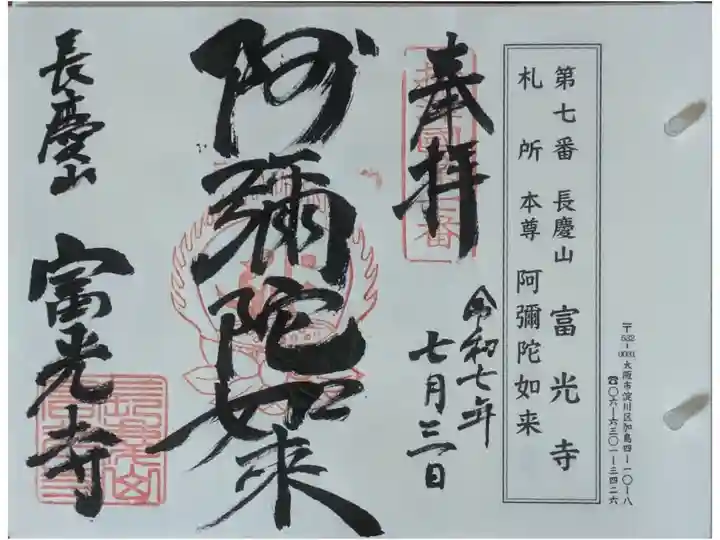 第七番 長慶山 富光寺
札所 本尊 阿彌陀如来
〒532-0031 大阪市淀川区加島四-一〇-八
☎〇六-六三〇一-三四二六
奉拝
令和七年
七月三日
阿彌陀如来
長慶山 富光寺